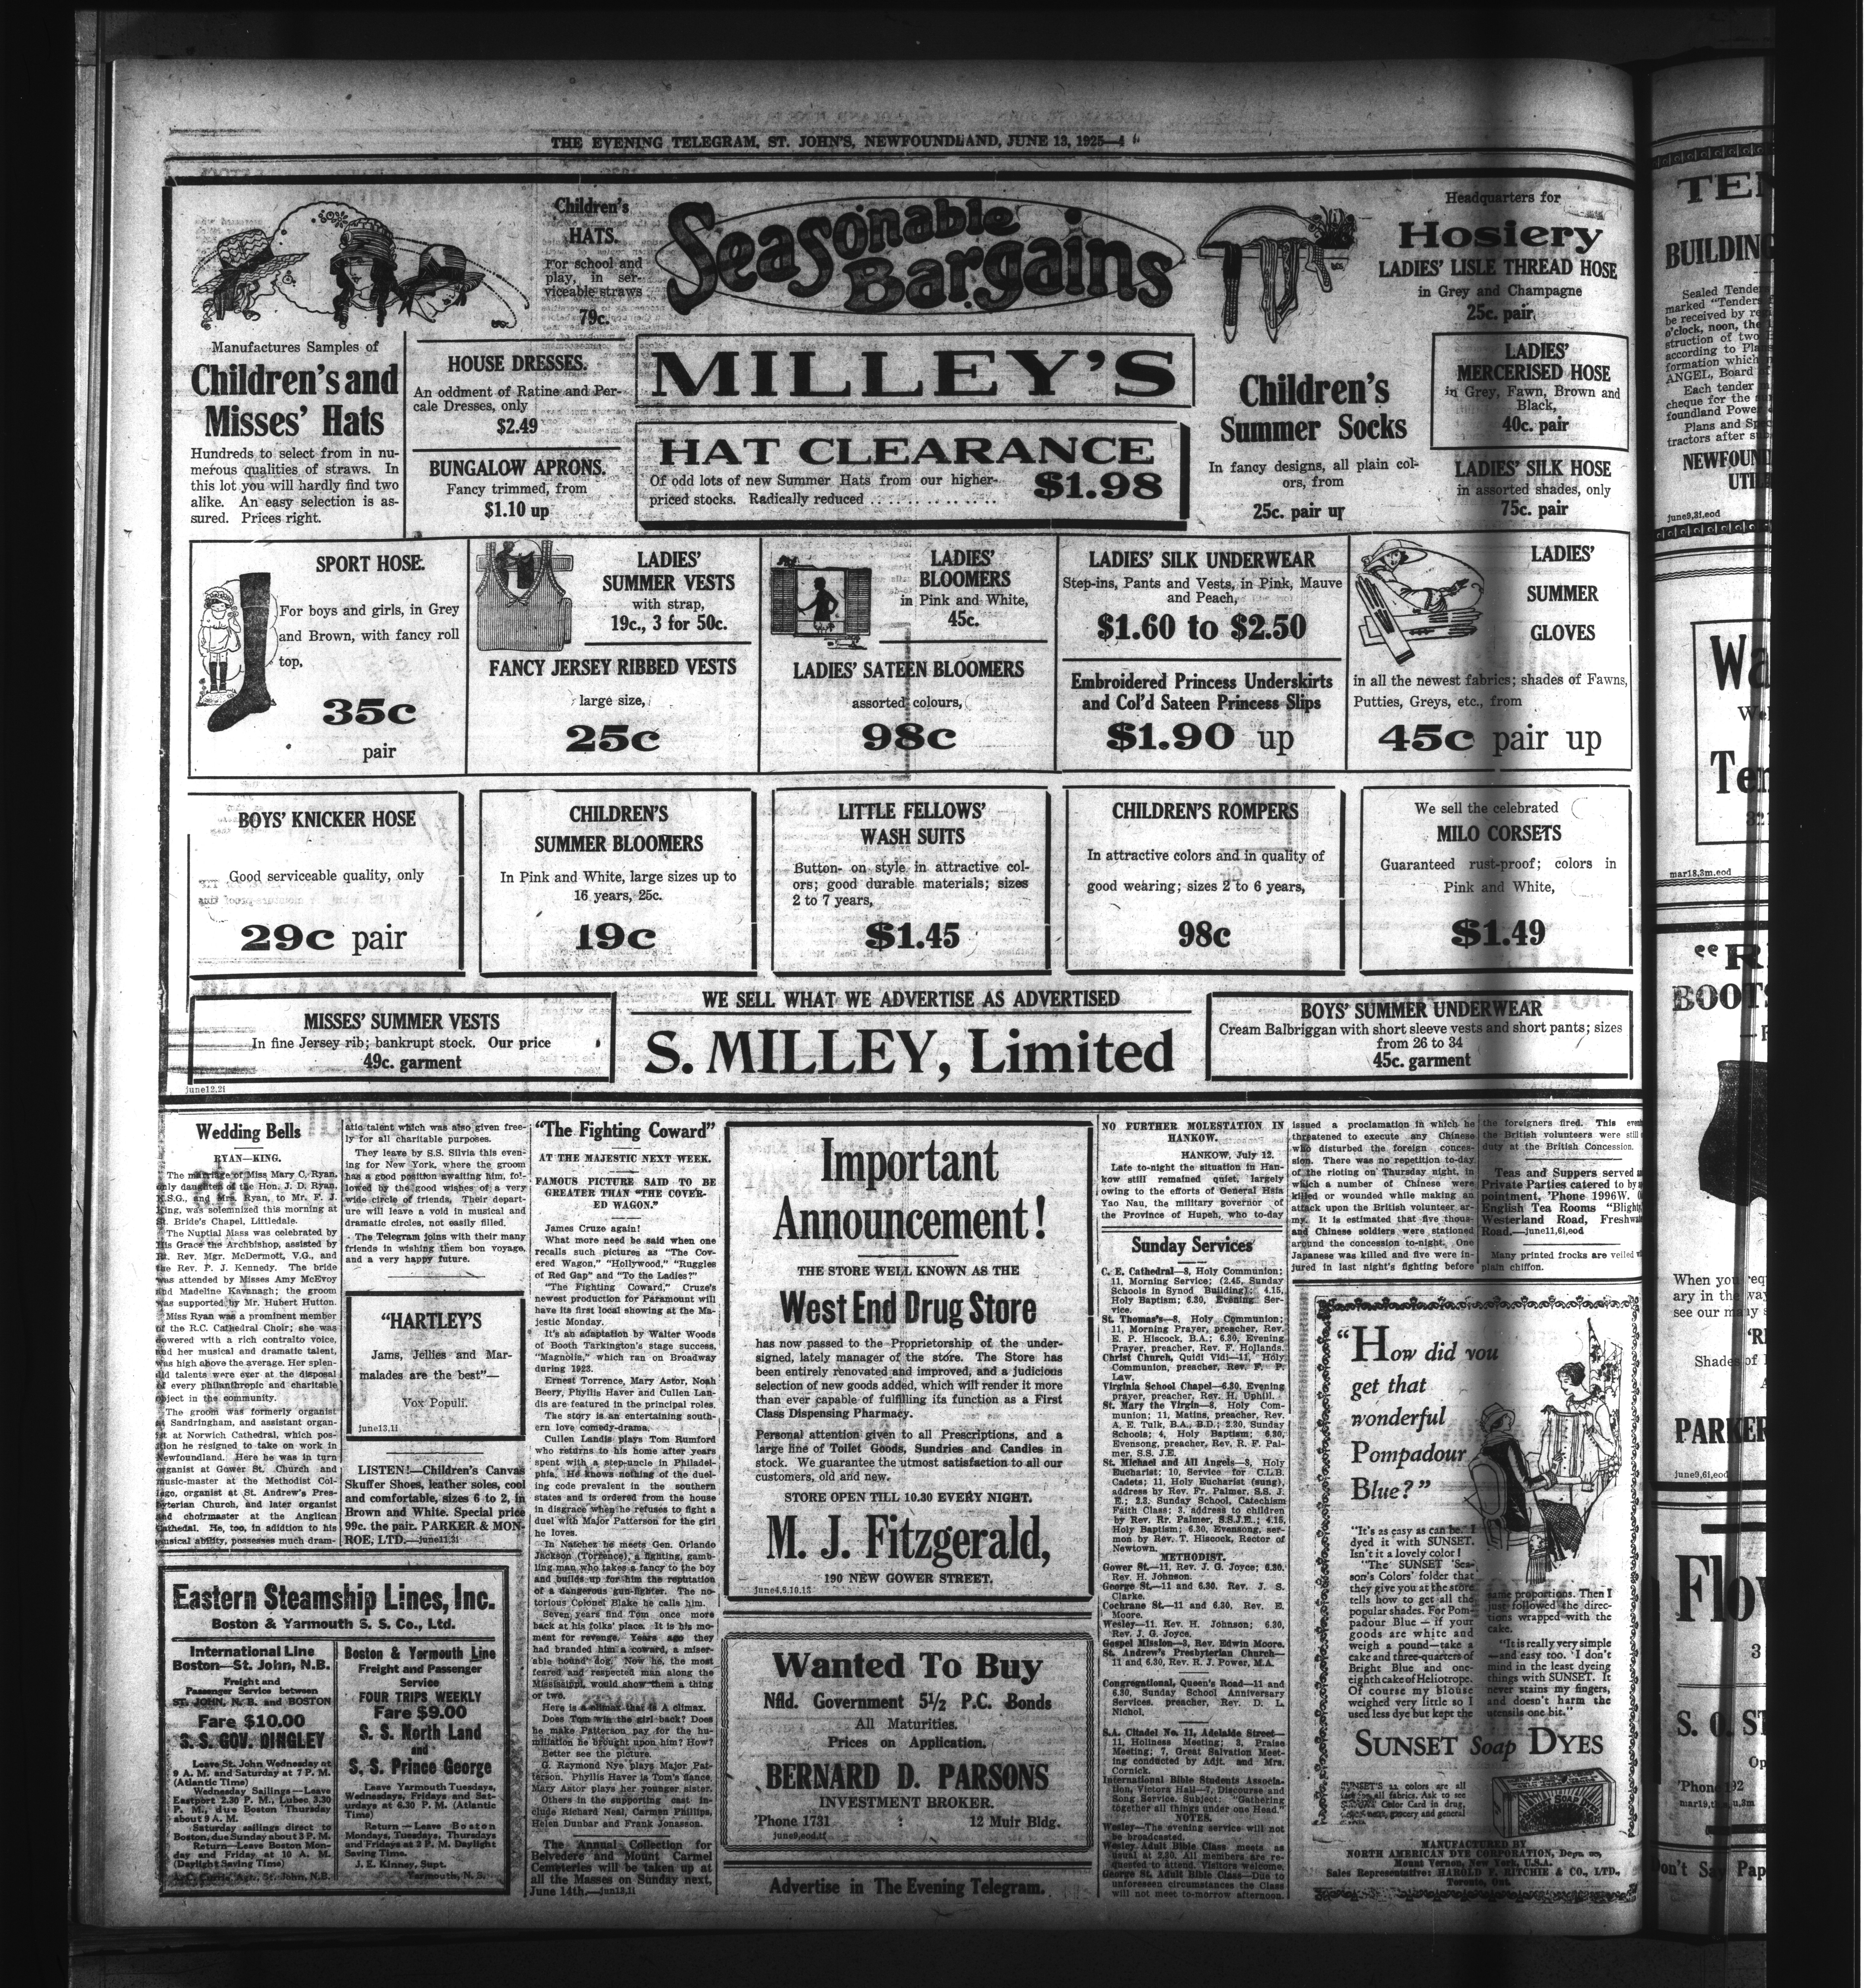 THE EVENING TELEGRAM, ST. JOHN'S, NEWFOUNDLAND, JUNE 13, 1925—4
Children's
HATS.
For school and
play, in ser-
viceable straws
79c.
Seasonable
Bargains
Headquarters for
Hosiery
LADIES' LISLE THREAD HOSE
in Grey and Champagne
25c. pair
Manufactures Samples of
Children's and
Misses' Hats
Hundreds to select from in nu-
merous qualities of straws. In
this lot you will hardly find two
alike. An easy selection is as-
sured. Prices right.
HOUSE DRESSES.
An oddment of Ratine and Per-
cale Dresses, only
$2.49
BUNGALOW APRONS.
Fancy trimmed, from
$1.10 up
MILLEY'S
HAT CLEARANCE
Of odd lots of new Summer Hats from our higher-
priced stocks. Radically reduced . . . . . . . . . . . .
$1.98
Children's
Summer Socks
In fancy designs, all plain col-
ors, from
25c. pair up
LADIES'
MERCERISED HOSE
in Grey, Fawn, Brown and
Black,
40c. pair
LADIES' SILK HOSE
in assorted shades, only
75c. pair
SPORT HOSE.
For boys and girls, in Grey
and Brown, with fancy roll
top.
35c
pair
LADIES'
SUMMER VESTS
with strap,
19c., 3 for 50c.
FANCY JERSEY RIBBED VESTS
large size,
25c
LADIES'
BLOOMERS
in Pink and White,
45c.
LADIES' SATEEN BLOOMERS
assorted colours,
98c
LADIES' SILK UNDERWEAR
Step-ins, Pants and Vests, in Pink, Mauve
and Peach,
$1.60 to $2.50
Embroidered Princess Underskirts
and Col'd Sateen Princess Slips
$1.90 up
LADIES'
SUMMER
GLOVES
in all the newest fabrics; shades of Fawns,
Putties, Greys, etc., from
45c pair up
BOYS' KNICKER HOSE
Good serviceable quality, only
29c pair
CHILDREN'S
SUMMER BLOOMERS
In Pink and White, large sizes up to
16 years, 25c.
19c
LITTLE FELLOWS'
WASH SUITS
Button- on style in attractive col-
ors; good durable materials; sizes
2 to 7 years,
$1.45
CHILDREN'S ROMPERS
In attractive colors and in quality of
good wearing; sizes 2 to 6 years,
98c
We sell the celebrated
MILO CORSETS
Guaranteed rust-proof; colors in
Pink and White,
$1.49
MISSES' SUMMER VESTS
In fine Jersey rib; bankrupt stock. Our price
49c. garment
june12,2i
WE SELL WHAT WE ADVERTISE AS ADVERTISED
S. MILLEY, Limited
BOYS' SUMMER UNDERWEAR
Cream Balbriggan with short sleeve vests and short pants; sizes
from 26 to 34
45c. garment
Wedding Bells
RYAN—KING.
The marriage of Miss Mary C. Ryan,
only daughter of the Hon. J. D. Ryan,
K.S.G., and Mrs. Ryan, to Mr. F. J.
King, was solemnized this morning at
St. Bride's Chapel, Littledale.
The Nuptial Mass was celebrated by
His Grace the Archbishop, assisted by
Rt. Rev. Mgr. McDermott, V.G., and
the Rev. P. J. Kennedy. The bride
was attended by Misses Amy McEvoy
and Madeline Kavanagh; the groom
was supported by Mr. Hubert Hutton.
Miss Ryan was a prominent member
of the R.C. Cathedral Choir; she was
dowered with a rich contralto voice,
and her musical and dramatic talent,
was high above the average. Her splen-
did talents were ever at the disposal
of every philanthropic and charitable
object in the community.
The groom was formerly organist
at Sandringham, and assistant organ-
ist at Norwich Cathedral, which pos-
ition he resigned to take on work in
Newfoundland. Here he was in turn
organist at Gower St. Church and
music-master at the Methodist Col-
lege, organist at St. Andrew's Pres-
byterian Church, and later organist
and choirmaster at the Anglican
Cathedal. He, too, in addition to his
musical ability, possesses much dram-
atic talent which was also given free-
ly for all charitable purposes.
They leave by S.S. Silvia this even-
ing for New York, where the groom
has a good position awaiting him, fol-
lowed by the good wishes of a very
wide circle of friends. Their depart-
ure will leave a void in musical and
dramatic circles, not easily filled.
The Telegram joins with their many
friends in wishing them bon voyage,
and a very happy future.
"HARTLEY'S
Jams, Jellies and Mar-
malades are the best"—
Vox Populi.
june13,1i
LISTEN!—Children's Canvas
Skuffer Shoes, leather soles, cool
and comfortable, sizes 6 to 2, in
Brown and White. Special price
99c. the pair. PARKER & MON-
ROE, LTD.—june11,3i
Eastern Steamship Lines, Inc.
Boston & Yarmouth S. S. Co., Ltd.
International Line
Boston—St. John, N.B.
Freight and
Passenger Service between
ST. JOHN, N. B. and BOSTON
Fare $10.00
S. S. GOV. DINGLEY
Leave St. John Wednesday at
9 A. M. and Saturday at 7 P. M.
(Atlantic Time)
Wednesday Sailings—Leave
Eastport 2.30 P. M., Lubec 3.30
P. M., due Boston Thursday
about 9 A. M.
Saturday sailings direct to
Boston, due Sunday about 3 P. M.
Return—Leave Boston Mon-
day and Friday at 10 A. M.
(Daylight Saving Time)
A. C. Currie, Agt., St. John, N.B.
Boston & Yarmouth Line
Freight and Passenger
Service
FOUR TRIPS WEEKLY
Fare $9.00
S. S. North Land
and
S. S. Prince George
Leave Yarmouth Tuesdays,
Wednesdays, Fridays and Sat-
urdays at 6.30 P. M. (Atlantic
Time)
Return—Leave Boston
Mondays, Tuesdays, Thursdays
and Fridays at 2 P. M. Daylight
Saving Time.
J. E. Kinney, Supt.
Yarmouth, N. S.
"The Fighting Coward"
AT THE MAJESTIC NEXT WEEK.
FAMOUS PICTURE SAID TO BE
GREATER THAN "THE COVER-
ED WAGON."
James Cruze again!
What more need be said when one
recalls such pictures as "The Cov-
ered Wagon," "Hollywood," "Ruggles
of Red Gap" and "To the Ladies?"
"The Fighting Coward," Cruze's
newest production for Paramount will
have its first local showing at the Ma-
jestic Monday.
It's an adaptation by Walter Woods
of Booth Tarkington's stage success,
"Magnolia," which ran on Broadway
during 1923.
Ernest Torrence, Mary Astor, Noah
Beery, Phyllis Haver and Cullen Lan-
dis are featured in the principal roles.
The story is an entertaining south-
ern love comedy-drama.
Cullen Landis plays Tom Rumford
who returns to his home after years
spent with a step-uncle in Philadel-
phia. He knows nothing of the duel-
ing code prevalent in the southern
states and is ordered from the house
in disgrace when he refuses to fight a
duel with Major Patterson for the girl
he loves.
In Natchez he meets Gen. Orlando
Jackson (Torrence), a fighting, gamb-
ling man who takes a fancy to the boy
and builds up for him the reputation
of a dangerous gun-fighter. The no-
torious Colonel Blake he calls him.
Seven years find Tom once more
back at his folks' place. It is his mo-
ment for revenge. Years ago they
had branded him a coward, a miser-
able hound dog. Now he, the most
feared and respected man along the
Mississippi, would show them a thing
or two.
Here is a climax that is A climax.
Does Tom win the girl back? Does
he make Patterson pay for the hu-
miliation he brought upon him? How?
Better see the picture.
G. Raymond Nye plays Major Pat-
terson. Phyllis Haver is Tom's fiance.
Mary Astor plays her younger sister.
Others in the supporting cast in-
clude Richard Neal, Carmen Phillips,
Helen Dunbar and Frank Jonasson.
The Annual Collection for
Belvedere and Mount Carmel
Cemeteries will be taken up at
all the Masses on Sunday next,
June 14th.—jun12,1i
Important
Announcement!
THE STORE WELL KNOWN AS THE
West End Drug Store
has now passed to the Proprietorship of the under-
signed, lately manager of the store. The Store has
been entirely renovated and improved, and a judicious
selection of new goods added, which will render it more
than ever capable of fulfilling its function as a First
Class Dispensing Pharmacy.
Personal attention given to all Prescriptions, and a
large line of Toilet Goods, Sundries and Candies in
stock. We guarantee the utmost satisfaction to all our
customers, old and new.
STORE OPEN TILL 10.30 EVERY NIGHT.
M. J. Fitzgerald,
190 NEW GOWER STREET.
june4,6,10,13
Wanted To Buy
Nfld. Government 5½ P.C. Bonds
All Maturities.
Prices on Application.
BERNARD D. PARSONS
INVESTMENT BROKER.
'Phone 1731 : 12 Muir Bldg.
june9,eod,tf
Advertise in The Evening Telegram.
NO FURTHER MOLESTATION IN
HANKOW.
HANKOW, July 12.
Late to-night the situation in Han-
kow still remained quiet, largely
owing to the efforts of General Hsia
Yao Nau, the military governor of
the Province of Hupeh, who to-day
issued a proclamation in which he
threatened to execute any Chinese
who disturbed the foreign conces-
sion. There was no repetition to-day
of the rioting on Thursday night, in
which a number of Chinese were
killed or wounded while making an
attack upon the British volunteer ar-
my. It is estimated that five thous-
and Chinese soldiers were stationed
around the concession to-night. One
Japanese was killed and five were in-
jured in last night's fighting before
the foreigners fired. This
the British volunteers were still
duty at the British Concession.
Teas and Suppers served
Private Parties catered to by
pointment, 'Phone 1996W.
English Tea Rooms "Blighty
Westerland Road, Freshwater
Road.—june11,6i,eod
Many printed frocks are veiled
plain chiffon.
Sunday Services
C. E. Cathedral—8, Holy Communion;
11, Morning Service; (2.45, Sunday
Schools in Synod Building); 4.15,
Holy Baptism; 6.30, Evening Ser-
vice.
St. Thomas's—8, Holy Communion;
11, Morning Prayer, preacher, Rev.
E. P. Hiscock, B.A.; 6.30, Evening
Prayer, preacher, Rev. F. Hollands.
Christ Church, Quidi Vidi—11, Holy
Communion, preacher, Rev. F. P.
Law.
Virginia School Chapel—6.30, Evening
prayer, preacher, Rev. H. Uphill.
St. Mary the Virgin—8, Holy Com-
munion; 11, Matins, preacher, Rev.
A. E. Tulk, B.A., B.D.; 2.30, Sunday
Schools; 4, Holy Baptism; 6.30,
Evensong, preacher, Rev. R. F. Pal-
mer, S.S. J.E.
St. Michael and All Angels—8, Holy
Eucharist; 10, Service for C.L.B.
Cadets; 11, Holy Eucharist (sung),
address by Rev. Fr. Palmer, S.S. J.
E.; 2.3, Sunday School, Catechism
Faith Class; 3, address to children
by Rev. Rr. Palmer, S.S.J.E.; 4.15,
Holy Baptism; 6.30, Evensong, ser-
mon by Rev. T. Hiscock, Rector of
Newtown.
METHODIST.
Gower St.—11, Rev. J. G. Joyce; 6.30,
Rev. H. Johnson.
George St.—11 and 6.30, Rev. J. S.
Clarke.
Cochrane St.—11 and 6.30, Rev. E.
Moore.
Wesley—11, Rev. H. Johnson; 6.30,
Rev. J. G. Joyce.
Gospel Mission—3, Rev. Edwin Moore.
St. Andrew's Presbyterian Church—
11 and 6.30, Rev. R. J. Power, M.A.
Congregational, Queen's Road—11 and
6.30, Sunday School Anniversary
Services, preacher, Rev. D. L.
Nichol.
S.A. Citadel No. 11, Adelaide Street—
11, Holiness Meeting; 3, Praise
Meeting; 7, Great Salvation Meet-
ing conducted by Adjt. and Mrs.
Cornick.
International Bible Students Associa-
tion, Victora Hall—7, Discourse and
Song Service. Subject: "Gathering
together all things under one Head."
NOTES.
Wesley—The evening service will not
be broadcasted.
Wesley Adult Bible Class meets as
usual at 2.30. All members are re-
quested to attend. Visitors welcome.
George St. Adult Bible Class—Due to
unforeseen circumstances the Class
will not meet to-morrow afternoon.
"How did you
get that
wonderful
Pompadour
Blue?"
"It's as easy as can be. I
dyed it with SUNSET.
Isn't it a lovely color!
"The SUNSET 'Sea-
son's Colors' folder that
they give you at the store
tells how to get all the
popular shades. For Pom-
padour Blue—if your
goods are white and
weigh a pound—take a
cake and three-quarters of
Bright Blue and one-
eighth cake of Heliotrope.
Of course my blouse
weighed very little so I
used less dye but kept the
same proportions. Then I
just followed the direc-
tions wrapped with the
cake.
"It is really very simple
—and easy too. I don't
mind in the least dyeing
things with SUNSET. It
never stains my fingers,
and doesn't harm the
utensils one bit."
SUNSET Soap DYES
SUNSET'S 22 colors are all
fast for all fabrics. Ask to see
Color Card in drug,
grocery and general
MANUFACTURED BY
NORTH AMERICAN DYE CORPORATION,
Mount Vernon, New York, U.S.A.
Sales Representative: HAROLD F. RITCHIE & CO., LTD.,
Toronto, Ont.
TEN
BUILDING
Sealed Tende
marked "Tenders
be received by
o'clock, noon, the
struction of two
according to Pla
formation which
ANGEL, Board
Each tender
cheque for the
foundland Power
Plans and Spec
tractors after
NEWFOUN
UTIL
june9,3i,eod
Wa
Ten
mar18,3m,eod
"R
BOOTS
When you req
ary in the way
see our many s
Shades of
PARKER
june9,6i,eod
Flow
3
S. O. ST
'Phone 192
Don't Say Pap